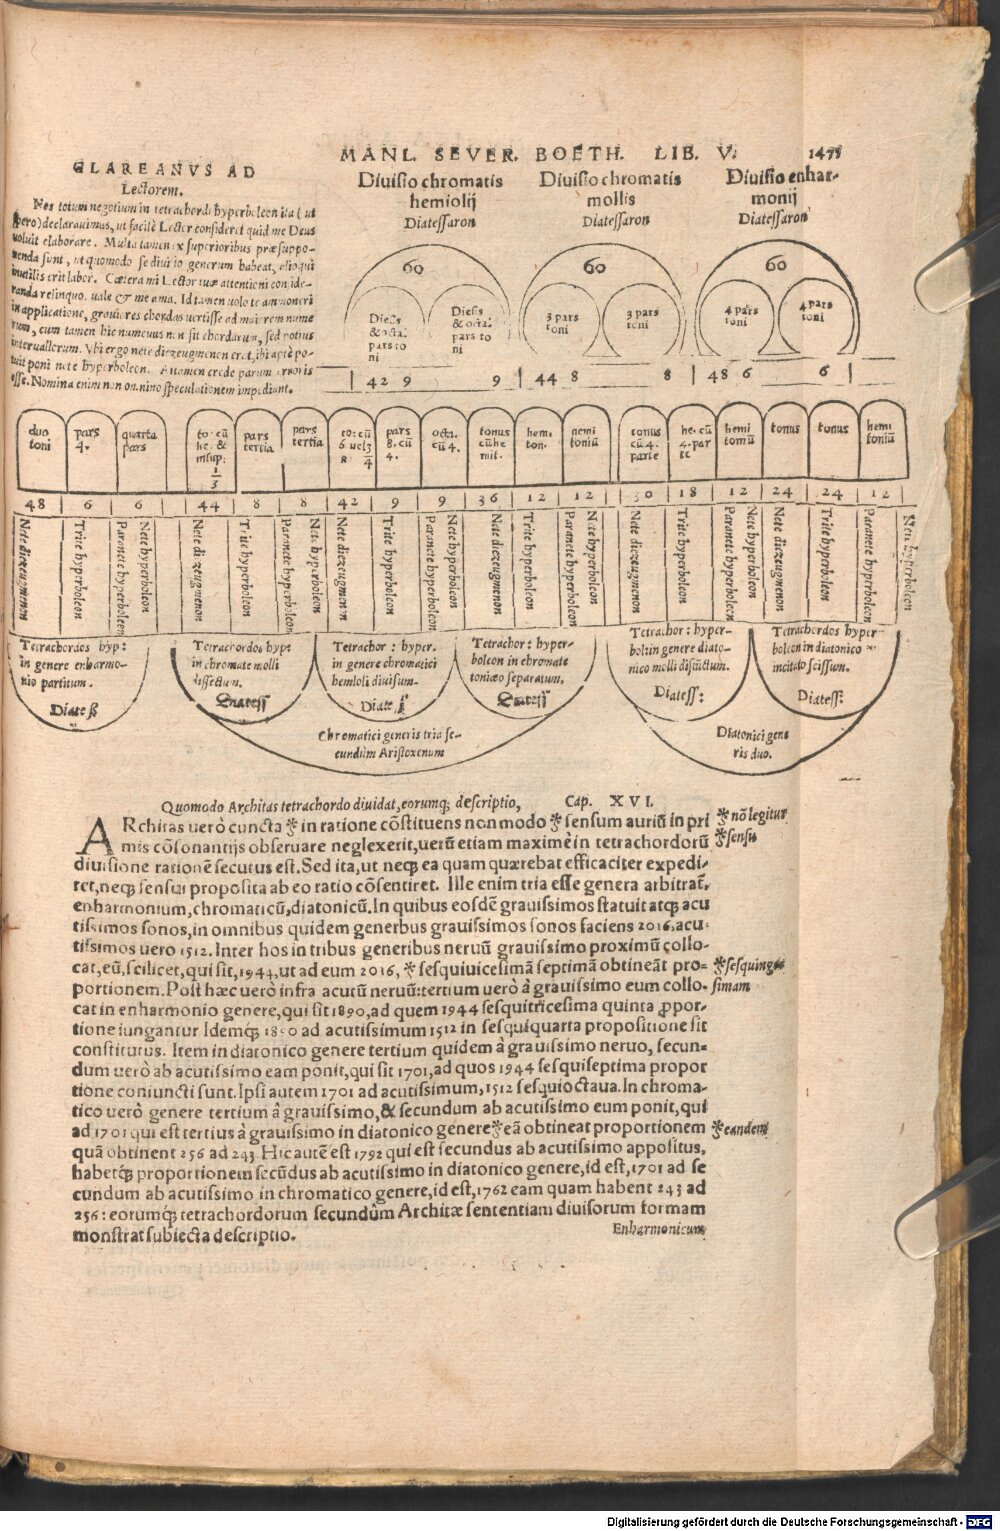 MANL. SEVER. BOETH. LIB. V.
GLAREANVS AD
Lectorem.
Nos totum negotium in tetrachordi hyperboleon ita (ut
spero) declarauimus, ut facilè Lector consideret quid me Deus
uoluit elaborare. Multa tamen ex superioribus præsuppo-
nenda sunt, ut quomodo se diuisio generum habeat, alioqui
inutilis erit labor. Cætera mi Lector tuæ attentioni conside-
randa relinquo. uale & me ama. Id tamen uolo te admoneri
in applicatione, grauiores chordas uertisse ad maiorem nume
rum, cum tamen hic numerus non sit chordarum, sed potius
interuallorum. Vbi ergo nete diezeugmenon eret, ibi aptè po-
tuit poni nete hyperboleon. Attamen crede parum erroris
esse. Nomina enim non omnino speculationem impediunt.
Diuisio chromatis
hemiolij
Diatessaron
60
Diesis
& octa.
pars to
ni
Diesis
& octa.
pars to
ni
42 9 9
Diuisio chromatis
mollis
Diatessaron
60
3 pars
toni
3 pars
toni
44 8 8
Diuisio enhar-
monij
Diatessaron
60
4 pars
toni
4 pars
toni
48 6 6
duo
toni
pars
4.
quarta
pars
to. cū
he. &
insup:
1/3
pars
tertia
pars
tertia
to: cū
6 uel 3/4
8
pars
8. cū
4.
octa.
cū 4.
tonus
cū he
mit.
hemi
ton.
hemi
toniū
tonus
cū 4.
parte
he. cū
4. par
te
hemi
toniū
tonus
tonus
hemi
toniū
48 | 6 | 6 | 44 | 8 | 8 | 42 | 9 | 9 | 36 | 12 | 12 | 30 | 18 | 12 | 24 | 24 | 12
Nete diezeugmenon
Trite hyperboleon
Paranete hyperboleon
Nete hyperboleon
Nete diezeugmenon
Trite hyperboleon
Paranete hyperboleon
Nete hyperboleon
Nete diezeugmenon
Trite hyperboleon
Paranete hyperboleon
Nete hyperboleon
Nete diezeugmenon
Trite hyperboleon
Paranete hyperboleon
Nete hyperboleon
Nete diezeugmenon
Trite hyperboleon
Paranete hyperboleon
Nete hyperboleon
Nete diezeugmenon
Trite hyperboleon
Paranete hyperboleon
Nete hyperboleon
Tetrachordos hyp:
in genere enharmo-
nio partitum.
Diateß
Tetrachordos hyp:
in chromate molli
dissectum.
Diatess
Tetrachor: hyper.
in genere chromatici
hemioli diuisum.
Diatess
Tetrachor: hyper-
boleon in chromate
toniæo separatum.
Diatess
Tetrachor: hyper-
bolein genere diato-
nico molli disiūctum.
Diatess:
Tetrachordos hyper
boleon in diatonico
incitato scissum.
Diatess:
Chromatici generis tria se-
cundùm Aristoxenum
Diatonici gene
ris duo.
Quomodo Architas tetrachordo diuidat, eorumq; descriptio, Cap. XVI.
ARchitas uerò cuncta * in ratione cōstituens non modo * sensum auriū in pri
mis cōsonantijs obseruare neglexerit, uerū etiam maximè in tetrachordorū
diuisione rationē secutus est. Sed ita, ut neq; ea quam quærebat efficaciter expedi-
ret, neq; sensui proposita ab eo ratio cōsentiret. Ille enim tria esse genera arbitrat̃,
enharmonium, chromaticū, diatonicū. In quibus eosdē grauissimos statuit atq; acu
tissimos sonos, in omnibus quidem generbus grauissimos sonos faciens 2016. acu-
tissimos uero 1512. Inter hos in tribus generibus neruū grauissimo proximū collo-
cat, eū, scilicet, qui sit, 1944, ut ad eum 2016, * sesquiuicesimā septimā obtineāt pro-
portionem. Post hæc uerò infra acutū neruū: tertium uerò à grauissimo eum collo-
cat in enharmonio genere, qui sit 1890, ad quem 1944 sesquitricesima quinta ꝓpor-
tione iungantur Idemq; 1890 ad acutissimum 1512 in sesquiquarta propositione sit
constitutus. Item in diatonico genere tertium quidem à grauissimo neruo, secun-
dum uerò ab acutissimo eam ponit, qui sit 1701, ad quos 1944 sesquiseptima propor
tione coniuncti sunt. Ipsi autem 1701 ad acutissimum, 1512 sesquioctaua. In chroma-
tico uerò genere tertium à grauissimo, & secundum ab acutissimo eum ponit, qui
ad 1701 qui est tertius à grauissimo in diatonico genere * eā obtineat proportionem
quā obtinent 256 ad 243. Hic autē est 1792 qui est secundus ab acutissimo appositus,
habetq; proportionem secūdus ab acutissimo in diatonico genere, id est, 1701 ad se
cundum ab acutissimo in chromatico genere, id est, 1762 eam quam habent 243 ad
256: eorumq; tetrachordorum secundùm Architæ sententiam diuisorum formam
monstrat subiecta descriptio.
Enharmonicum
* nō legitur
* sensu
* sesquinge
simam
* eandem
Digitalisierung gefördert durch die Deutsche Forschungsgemeinschaft - DFG